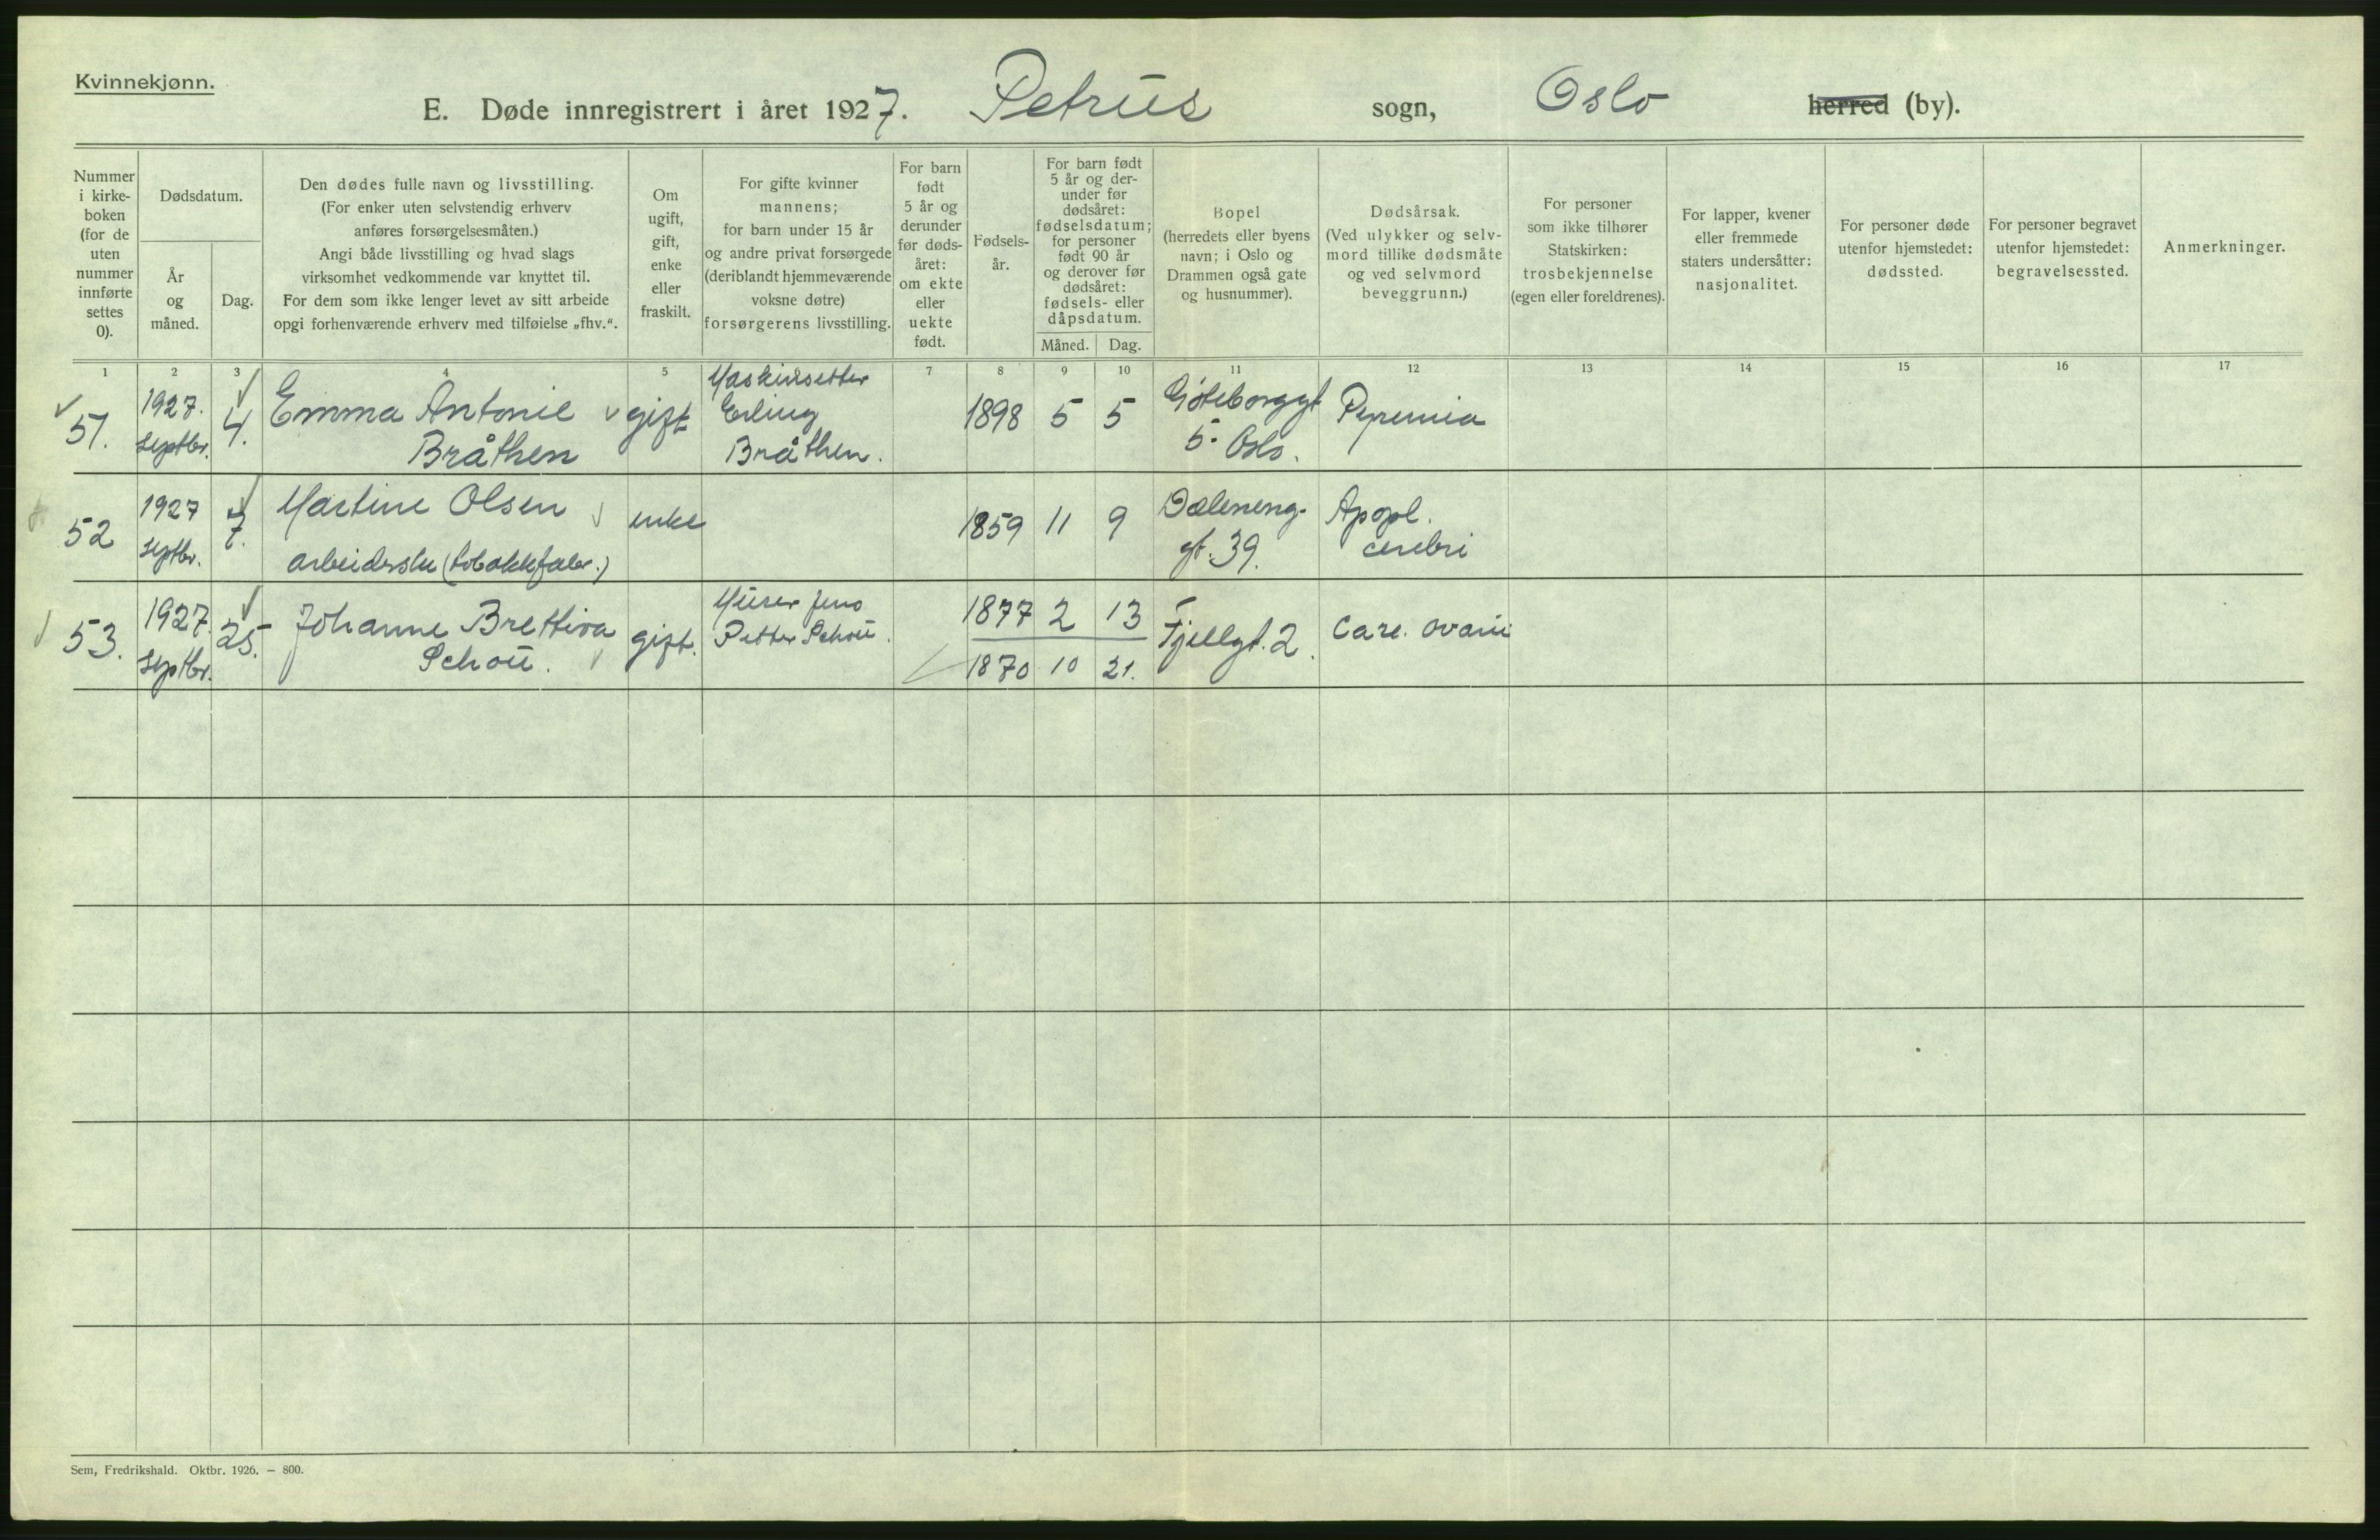 Kvinnekjønn.
E. Døde innregistrert i året 1927. Petrus sogn, Oslo herred (by).
Nummer
i kirke-
boken
(for de
uten
nummer
innførte
settes
0).
Dødsdatum.
År
og
måned.
Dag.
Den dødes fulle navn og livsstilling.
(For enker uten selvstendig erhverv
anføres forsørgelsesmåten.)
Angi både livsstilling og hvad slags
virksomhet vedkommende var knyttet til.
For dem som ikke lenger levet av sitt arbeide
opgi forhenværende erhverv med tilføielse „fhv.“.
Om
ugift,
gift,
enke
eller
fraskilt.
For gifte kvinner
mannens;
for barn under 15 år
og andre privat forsørgede
(deriblandt hjemmeværende
voksne døtre)
forsørgerens livsstilling.
For barn
født
5 år og
derunder
før døds-
året:
om ekte
eller
uekte
født.
Fødsels-
år.
For barn født
5 år og der-
under før
dødsåret:
fødselsdatum;
for personer
født 90 år
og derover før
dødsåret:
fødsels- eller
dåpsdatum.
Måned. Dag.
Bopel
(herredets eller byens
navn; i Oslo og
Drammen også gate
og husnummer).
Dødsårsak.
(Ved ulykker og selv-
mord tillike dødsmåte
og ved selvmord
beveggrunn.)
For personer
som ikke tilhører
Statskirken:
trosbekjennelse
(egen eller foreldrenes).
For lapper, kvener
eller fremmede
staters undersåtter:
nasjonalitet.
For personer døde
utenfor hjemstedet:
dødssted.
For personer begravet
utenfor hjemstedet:
begravelsessted.
Anmerkninger.
1 2 3 4 5 6 7 8 9 10 11 12 13 14 15 16 17
51.
1927.
Septbr.
4.
Emma Antonie
Bråthen
gift
Maskinsetter
Erling
Bråthen.
1898 5 5
Göteborggt
5. Oslo.
Pyremia
52
1927
Septbr.
7.
Martine Olsen
arbeiderske (tobakkfabr.)
enke
1859 11 9
Daleneng-
gt. 39.
Apopl.
cerebri
53.
1927.
Septbr.
25.
Johanne Brettiva
Schou.
gift.
Murer Jens
Petter Schou.
1877 2 13
1870 10 21.
Fjellgt. 2.
Carc. ovarii
Sem, Fredrikshald. Oktbr. 1926. – 800.